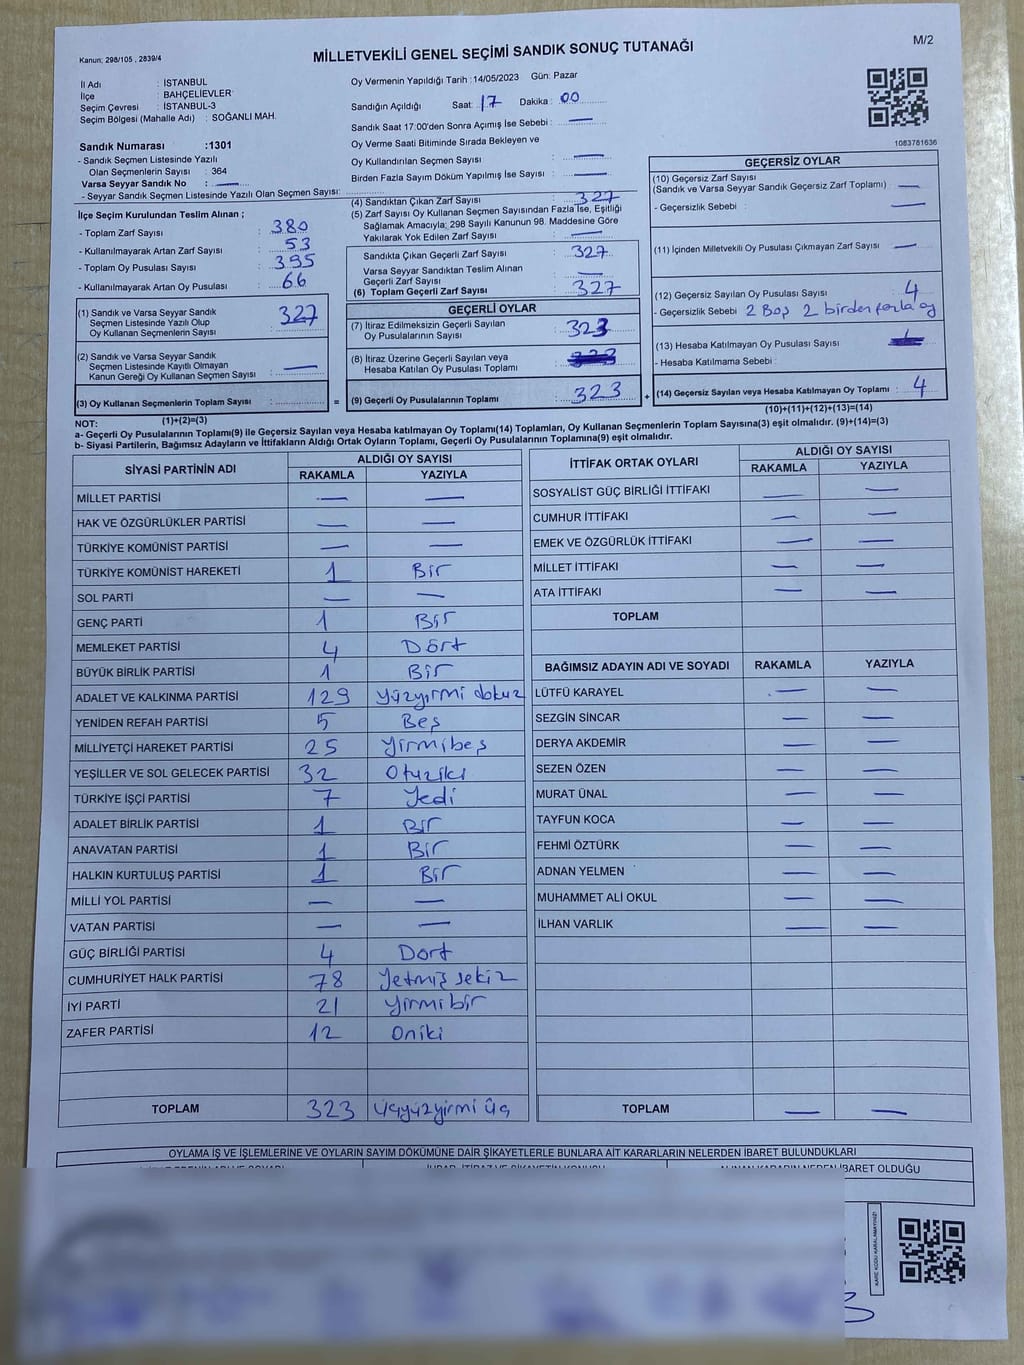 Kanun: 298/105 , 2839/4
MİLLETVEKİLİ GENEL SEÇİMİ SANDIK SONUÇ TUTANAĞI
M/2
İl Adı : İSTANBUL
İlçe : BAHÇELİEVLER
Seçim Çevresi : İSTANBUL-3
Seçim Bölgesi (Mahalle Adı) : SOĞANLI MAH.
Sandık Numarası :1301
- Sandık Seçmen Listesinde Yazılı
Olan Seçmenlerin Sayısı : 364
Varsa Seyyar Sandık No : —
- Seyyar Sandık Seçmen Listesinde Yazılı Olan Seçmen Sayısı:
Oy Vermenin Yapıldığı Tarih :14/05/2023 Gün: Pazar
Sandığın Açıldığı Saat: 17 Dakika : 00
Sandık Saat 17:00'den Sonra Açımış İse Sebebi : —
Oy Verme Saati Bitiminde Sırada Bekleyen ve
Oy Kullandırılan Seçmen Sayısı : —
Birden Fazla Sayım Döküm Yapılmış İse Sayısı : —
1083781636
İlçe Seçim Kurulundan Teslim Alınan ;
- Toplam Zarf Sayısı : 380
- Kullanılmayarak Artan Zarf Sayısı : 53
- Toplam Oy Pusulası Sayısı : 395
- Kullanılmayarak Artan Oy Pusulası : 66
(1) Sandık ve Varsa Seyyar Sandık
Seçmen Listesinde Yazılı Olup
Oy Kullanan Seçmenlerin Sayısı : 327
(2) Sandık ve Varsa Seyyar Sandık
Seçmen Listesinde Kayıtlı Olmayan
Kanun Gereği Oy Kullanan Seçmen Sayısı : —
(3) Oy Kullanan Seçmenlerin Toplam Sayısı :
(1)+(2)=(3)
(4) Sandıktan Çıkan Zarf Sayısı : 327
(5) Zarf Sayısı Oy Kullanan Seçmen Sayısından Fazla İse, Eşitliği
Sağlamak Amacıyla; 298 Sayılı Kanunun 98. Maddesine Göre
Yakılarak Yok Edilen Zarf Sayısı : —
Sandıkta Çıkan Geçerli Zarf Sayısı : 327
Varsa Seyyar Sandıktan Teslim Alınan
Geçerli Zarf Sayısı : —
(6) Toplam Geçerli Zarf Sayısı : 327
GEÇERLİ OYLAR
(7) İtiraz Edilmeksizin Geçerli Sayılan
Oy Pusulalarının Sayısı : 323
(8) İtiraz Üzerine Geçerli Sayılan veya
Hesaba Katılan Oy Pusulası Toplamı :
= (9) Geçerli Oy Pusulalarının Toplamı : 323
GEÇERSİZ OYLAR
(10) Geçersiz Zarf Sayısı
(Sandık ve Varsa Seyyar Sandık Geçersiz Zarf Toplamı) : —
- Geçersizlik Sebebi : —
(11) İçinden Milletvekili Oy Pusulası Çıkmayan Zarf Sayısı : —
(12) Geçersiz Sayılan Oy Pusulası Sayısı : 4
- Geçersizlik Sebebi : 2 Boş 2 birden fazla oy
(13) Hesaba Katılmayan Oy Pusulası Sayısı :
- Hesaba Katılmama Sebebi :
+ (14) Geçersiz Sayılan veya Hesaba Katılmayan Oy Toplamı : 4
(10)+(11)+(12)+(13)=(14)
NOT:
a- Geçerli Oy Pusulalarının Toplamı(9) ile Geçersiz Sayılan veya Hesaba katılmayan Oy Toplamı(14) Toplamları, Oy Kullanan Seçmenlerin Toplam Sayısına(3) eşit olmalıdır. (9)+(14)=(3)
b- Siyasi Partilerin, Bağımsız Adayların ve İttifakların Aldığı Ortak Oyların Toplamı, Geçerli Oy Pusulalarının Toplamına(9) eşit olmalıdır.
SİYASİ PARTİNİN ADI ALDIĞI OY SAYISI
RAKAMLA YAZIYLA
MİLLET PARTİSİ — —
HAK VE ÖZGÜRLÜKLER PARTİSİ — —
TÜRKİYE KOMÜNİST PARTİSİ — —
TÜRKİYE KOMÜNİST HAREKETİ 1 Bir
SOL PARTİ — —
GENÇ PARTİ 1 Bir
MEMLEKET PARTİSİ 4 Dört
BÜYÜK BİRLİK PARTİSİ 1 Bir
ADALET VE KALKINMA PARTİSİ 129 Yüzyirmi dokuz
YENİDEN REFAH PARTİSİ 5 Beş
MİLLİYETÇİ HAREKET PARTİSİ 25 Yirmibeş
YEŞİLLER VE SOL GELECEK PARTİSİ 32 Otuziki
TÜRKİYE İŞÇİ PARTİSİ 7 Yedi
ADALET BİRLİK PARTİSİ 1 Bir
ANAVATAN PARTİSİ 1 Bir
HALKIN KURTULUŞ PARTİSİ 1 Bir
MİLLİ YOL PARTİSİ — —
VATAN PARTİSİ — —
GÜÇ BİRLİĞİ PARTİSİ 4 Dort
CUMHURİYET HALK PARTİSİ 78 Yetmiş sekiz
İYİ PARTİ 21 Yirmibir
ZAFER PARTİSİ 12 Oniki
TOPLAM 323 Üçyüzyirmi üç
İTTİFAK ORTAK OYLARI ALDIĞI OY SAYISI
RAKAMLA YAZIYLA
SOSYALİST GÜÇ BİRLİĞİ İTTİFAKI — —
CUMHUR İTTİFAKI — —
EMEK VE ÖZGÜRLÜK İTTİFAKI — —
MİLLET İTTİFAKI — —
ATA İTTİFAKI — —
TOPLAM
BAĞIMSIZ ADAYIN ADI VE SOYADI RAKAMLA YAZIYLA
LÜTFÜ KARAYEL — —
SEZGİN SİNCAR — —
DERYA AKDEMİR — —
SEZEN ÖZEN — —
MURAT ÜNAL — —
TAYFUN KOCA — —
FEHMİ ÖZTÜRK — —
ADNAN YELMEN — —
MUHAMMET ALİ OKUL — —
İLHAN VARLIK — —
TOPLAM — —
OYLAMA İŞ VE İŞLEMLERİNE VE OYLARIN SAYIM DÖKÜMÜNE DAİR ŞİKAYETLERLE BUNLARA AİT KARARLARIN NELERDEN İBARET BULUNDUKLARI
İBARET OLDUĞU
KARE KODU KARALAMAYINIZ!